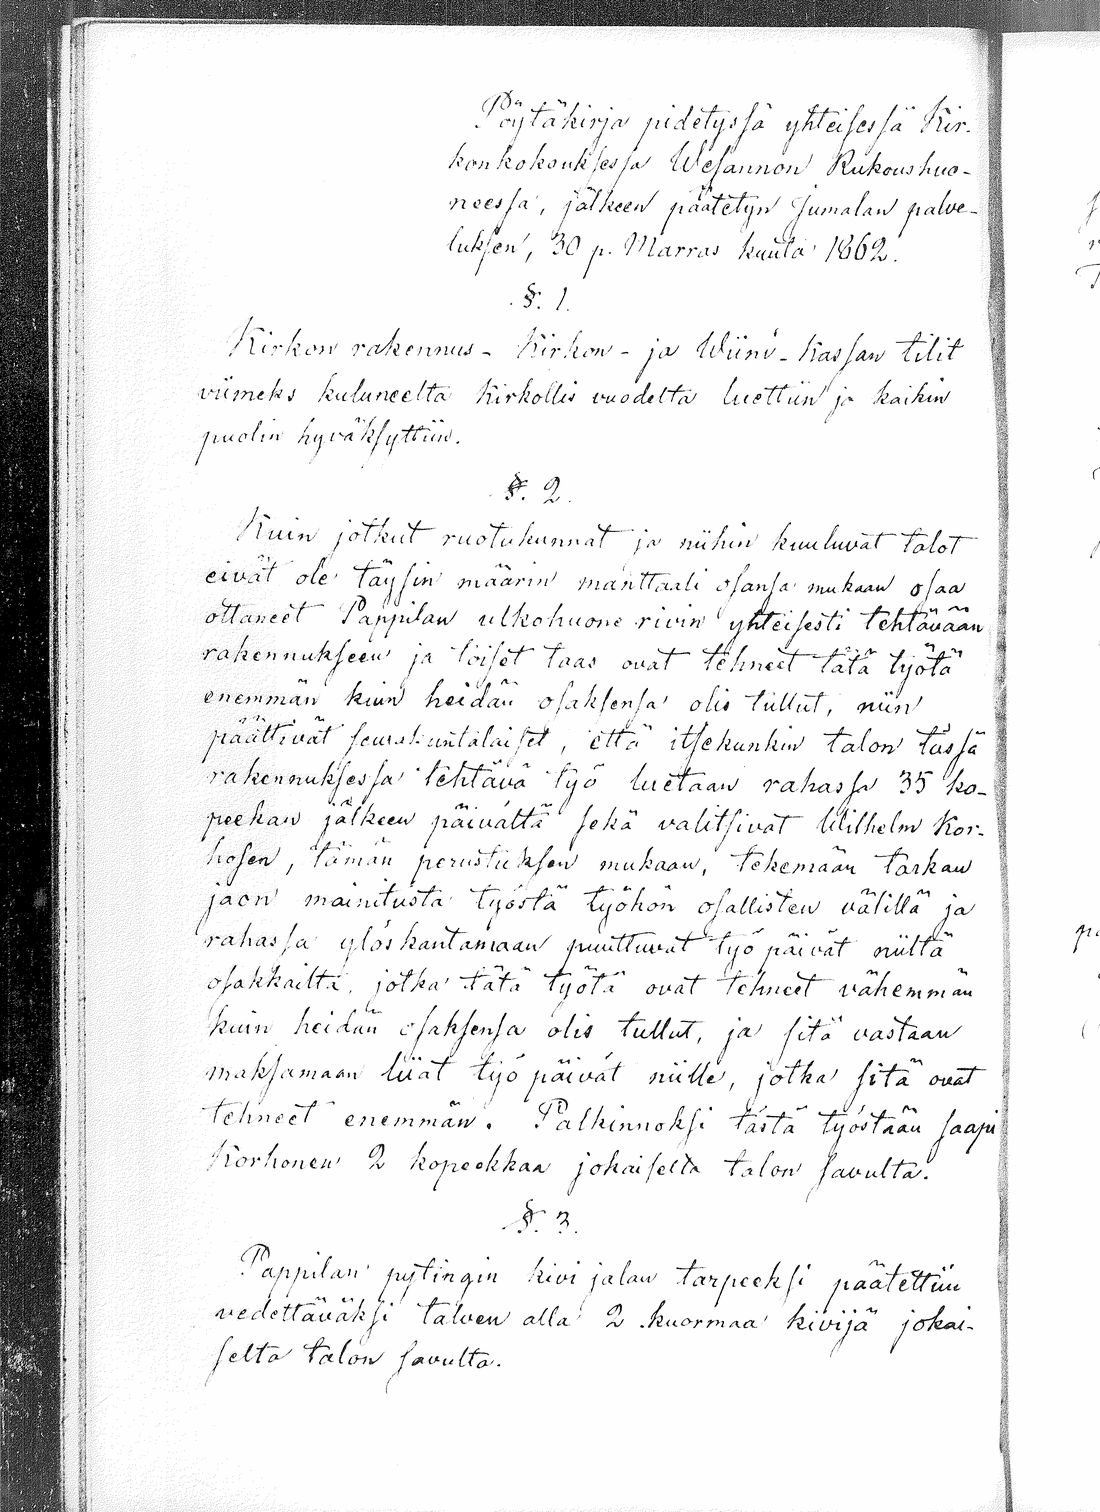 Pöytäkirja pidetyssä yhteisessä Kir-
konkokouksessa Wesannon Rukoushuo-
neessa, jälkeen päätetyn Jumalan palve-
luksen, 30 p. Marras kuuta 1862.
§. 1.
Kirkon rakennus- Kirkon- ja Wiini-Kassan tilit
viimeks kuluneelta Kirkollis vuodelta luettiin ja kaikin
puolin hyväksyttiin.
§. 2.
Kuin jotkut ruotukunnat ja niihin kuuluvat talot
eivät ole täysin määrin manttaali osansa mukaan osaa
ottaneet Pappilan ulkohuone rivin yhteisesti tehtävään
rakennukseen ja toiset taas ovat tehneet tätä työtä
enemmän kuin heidän osaksensa olis tullut, niin
päättivät seurakuntalaiset, että itsekunkin talon tässä
rakennuksessa tehtävä työ luetaan rahassa 35 ko-
peekan jälkeen päivältä sekä valitsivat Wilhelm Kor-
hosen, tämän perustuksen mukaan, tekemään tarkan
jaon mainitusta työstä työhön osallisten välillä ja
rahassa ylöskantamaan puuttuvat työ päivät niiltä
osakkailta, jotka tätä työtä ovat tehneet vähemmän
kuin heidän osaksensa olis tullut, ja sitä vastaan
maksamaan liiat työ päivät niille, jotka sitä ovat
tehneet enemmän. Palkinnoksi tästä työstään saapi
Korhonen 2 kopeekkaa jokaiselta talon savulta.
§. 3.
Pappilan pytingin kivi jalan tarpeeksi päätettiin
vedettäväksi talven alla 2 kuormaa kivijä jokai-
selta talon savulta.